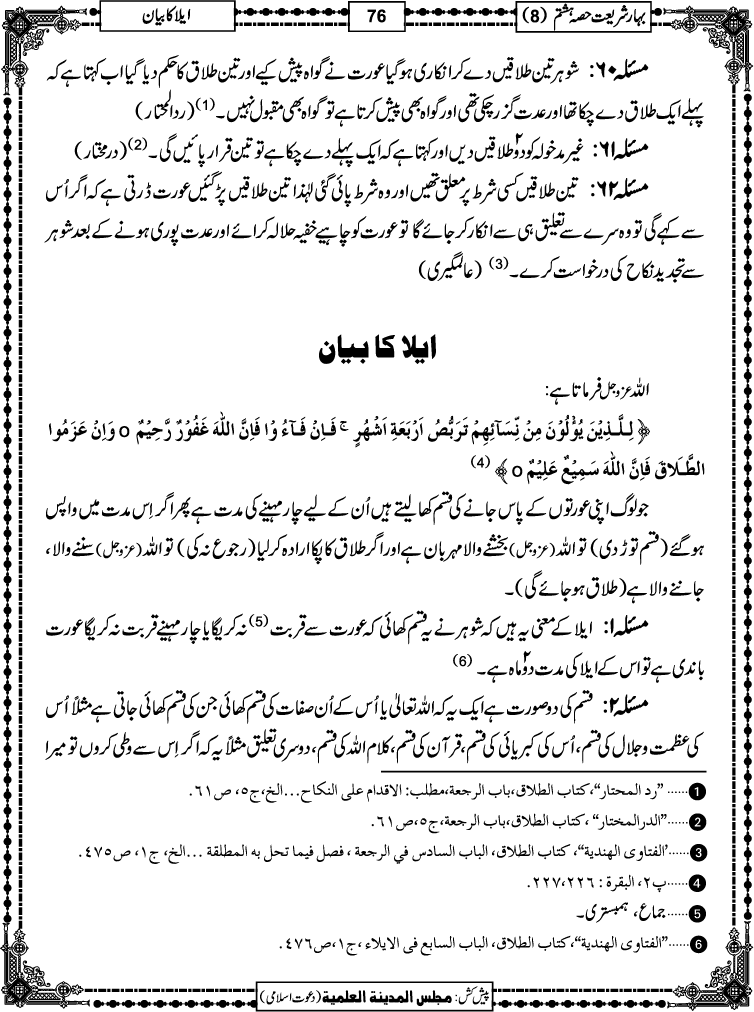 بہار شریعت حصہ ہشتم (8)
76
ایلا کا بیان
مسئلہ ۶۰: شوہر تین طلاقیں دے کر انکاری ہوگیا عورت نے گواہ پیش کیے اور تین طلاق کا حکم دیا گیا اب کہتا ہے کہ
پہلے ایک طلاق دے چکا تھا اور عدت گزر چکی تھی اور گواہ بھی پیش کرتا ہے تو گواہ بھی مقبول نہیں۔(1) (ردالمحتار)
مسئلہ ۶۱: غیر مدخولہ کو دو۲ طلاقیں دیں اور کہتا ہے کہ ایک پہلے دے چکا ہے تو تین قرار پائیں گی۔(2) (درمختار)
مسئلہ ۶۲: تین طلاقیں کسی شرط پر معلق تھیں اور وہ شرط پائی گئی لہٰذا تین طلاقیں پڑ گئیں عورت ڈرتی ہے کہ اگر اُس
سے کہے گی تو وہ سرے سے تعلیق ہی سے انکار کر جائے گا تو عورت کو چاہیے خفیہ حلالہ کرائے اور عدت پوری ہونے کے بعد شوہر
سے تجدید نکاح کی درخواست کرے۔(3) (عالمگیری)
ایلا کا بیان
اللہ عزوجل فرماتا ہے:
﴿ لِلَّذِیْنَ یُؤْلُوْنَ مِنْ نِّسَآئِهِمْ تَرَبُّصُ اَرْبَعَةِ اَشْهُرٍ ۚ فَاِنْ فَآءُوْا فَاِنَّ اللّٰهَ غَفُوْرٌ رَّحِیْمٌ o وَاِنْ عَزَمُوا
الطَّلَاقَ فَاِنَّ اللّٰهَ سَمِیْعٌ عَلِیْمٌ o ﴾ (4)
جو لوگ اپنی عورتوں کے پاس جانے کی قسم کھا لیتے ہیں اُن کے لیے چار مہینے کی مدت ہے پھر اگر اِس مدت میں واپس
ہوگئے (قسم توڑ دی) تو اللہ (عزوجل) بخشنے والا مہربان ہے اور اگر طلاق کا پکا ارادہ کرلیا (رجوع نہ کی) تو اللہ (عزوجل) سننے والا،
جاننے والا ہے (طلاق ہو جائے گی)۔
مسئلہ ۱: ایلا کے معنی یہ ہیں کہ شوہر نے یہ قسم کھائی کہ عورت سے قربت (5) نہ کریگا یا چار مہینے قربت نہ کریگا عورت
باندی ہے تو اس کے ایلا کی مدت دو۲ ماہ ہے۔ (6)
مسئلہ ۲: قسم کی دو صورت ہے ایک یہ کہ اللہ تعالیٰ یا اس کے اُن صفات کی قسم کھائی جن کی قسم کھائی جاتی ہے مثلاً اُس
کی عظمت و جلال کی قسم، اُس کی کبریائی کی قسم، قرآن کی قسم، کلام اللہ کی قسم، دوسری تعلیق مثلاً یہ کہ اگر اِس سے وطی کروں تو میرا
1 ......"رد المحتار"، کتاب الطلاق، باب الرجعة، مطلب: الاقدام علی النکاح...الخ، ج۵، ص۶۱.
2 ......"الدرالمختار"، کتاب الطلاق، باب الرجعة، ج۵، ص۶۱.
3 ......"الفتاوی الهندیة"، کتاب الطلاق، الباب السادس في الرجعة، فصل فیما تحل به المطلقة ...الخ، ج۱، ص۴۷۵.
4 ......پ۲، البقرة: ۲۲۶،۲۲۷.
5 ......جماع، ہمبستری۔
6 ......"الفتاوی الهندیة"، کتاب الطلاق، الباب السابع فی الایلاء، ج۱، ص۴۷۶.
پیش کش: مجلس المدینة العلمیة (دعوت اسلامی)